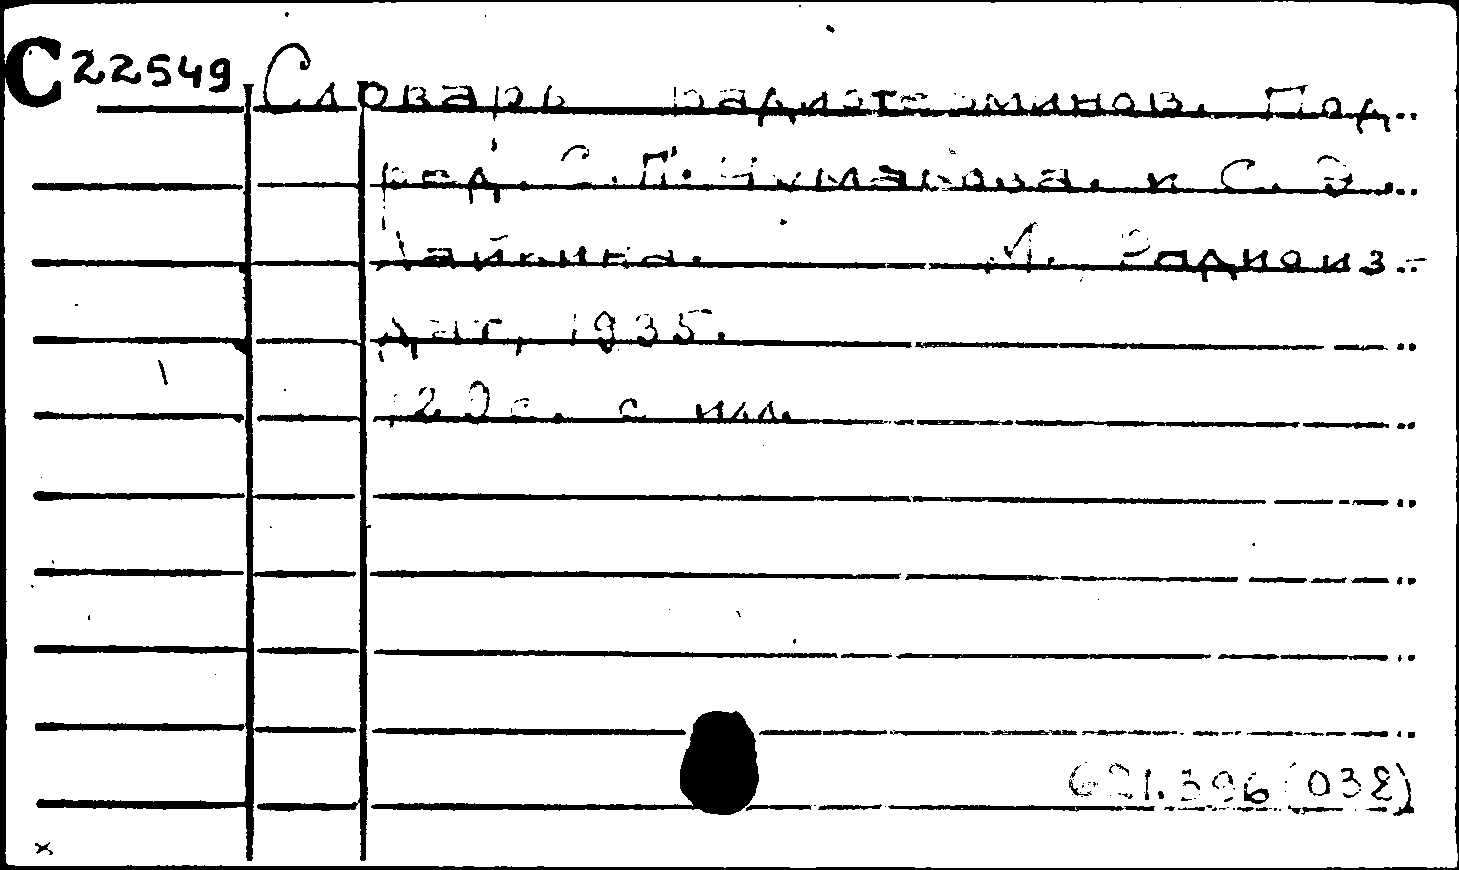 С22549 Словарь радиотерминов. Под
ред. С.П. Чумакова. и С. Э.
Хайкина. М. Радиоиз-
дат, 1935.
с. с илл.
621.396(032)